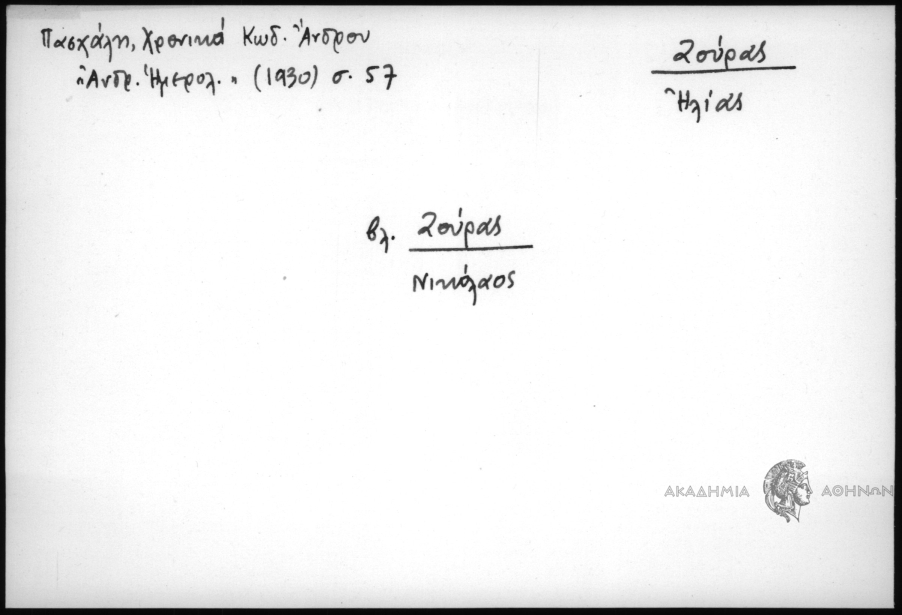 Πασχάλη, Χρονικά Κωδ. Ἄνδρου
"Ἀνδρ. Ἡμερολ." (1930) σ. 57
Ζούρας
Ἠλίας
βλ. Ζούρας
Νικόλαος
ΑΚΑΔΗΜΙΑ ΑΘΗΝΩΝ